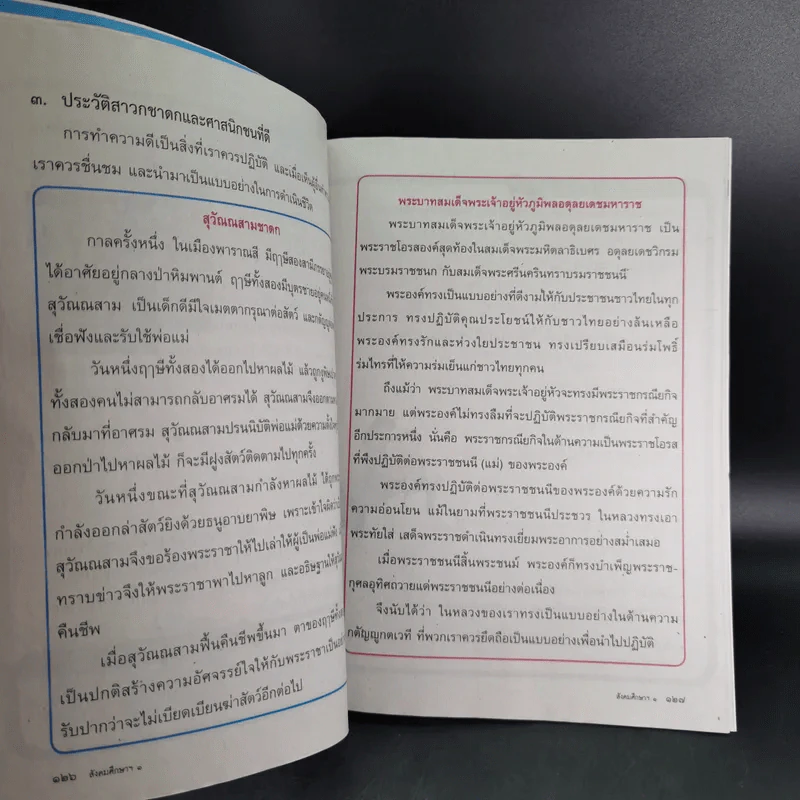 ๓. ประวัติสาวกชาดกและศาสนิกชนที่ดี
การทำความดีเป็นสิ่งที่เราควรปฏิบัติ และเมื่อเห็นผู้อื่น
เราควรชื่นชม และนำมาเป็นแบบอย่างในการดำเนินชีวิต
สุวัณณสามชาดก
กาลครั้งหนึ่ง ในเมืองพาราณสี มีฤๅษีสองสามีภรรยา
ได้อาศัยอยู่กลางป่าหิมพานต์ ฤๅษีทั้งสองมีบุตรชาย
สุวัณณสาม เป็นเด็กดีมีใจเมตตากรุณาต่อสัตว์ และกตัญญู
เชื่อฟังและรับใช้พ่อแม่
วันหนึ่งฤๅษีทั้งสองได้ออกไปหาผลไม้ แล้วถูกงูพิษ
ทั้งสองคนไม่สามารถกลับอาศรมได้ สุวัณณสามจึงออก
กลับมาที่อาศรม สุวัณณสามปรนนิบัติพ่อแม่ด้วยความ
ออกป่าไปหาผลไม้ ก็จะมีฝูงสัตว์ติดตามไปทุกครั้ง
วันหนึ่งขณะที่สุวัณณสามกำลังหาผลไม้ ได้ถูก
กำลังออกล่าสัตว์ยิงด้วยธนูอาบยาพิษ เพราะเข้าใจผิด
สุวัณณสามจึงขอร้องพระราชาให้ไปเล่าให้ผู้เป็นพ่อแม่ฟัง
ทราบข่าวจึงให้พระราชาพาไปหาลูก และอธิษฐานให้
คืนชีพ
เมื่อสุวัณณสามฟื้นคืนชีพขึ้นมา ตาของฤๅษีทั้ง
เป็นปกติสร้างความอัศจรรย์ใจให้กับพระราชาเป็น
รับปากว่าจะไม่เบียดเบียนฆ่าสัตว์อีกต่อไป
๑๒๖ สังคมศึกษาฯ ๑
พระบาทสมเด็จพระเจ้าอยู่หัวภูมิพลอดุลยเดชมหาราช
พระบาทสมเด็จพระเจ้าอยู่หัวภูมิพลอดุลยเดชมหาราช เป็น
พระราชโอรสองค์สุดท้องในสมเด็จพระมหิตลาธิเบศร อดุลยเดชวิกรม
พระบรมราชชนก กับสมเด็จพระศรีนครินทราบรมราชชนนี
พระองค์ทรงเป็นแบบอย่างที่ดีงามให้กับประชาชนชาวไทยในทุก
ประการ ทรงปฏิบัติคุณประโยชน์ให้กับชาวไทยอย่างล้นเหลือ
พระองค์ทรงรักและห่วงใยประชาชน ทรงเปรียบเสมือนร่มโพธิ์
ร่มไทรที่ให้ความร่มเย็นแก่ชาวไทยทุกคน
ถึงแม้ว่า พระบาทสมเด็จพระเจ้าอยู่หัวจะทรงมีพระราชกรณียกิจ
มากมาย แต่พระองค์ไม่ทรงลืมที่จะปฏิบัติพระราชกรณียกิจที่สำคัญ
อีกประการหนึ่ง นั่นคือ พระราชกรณียกิจในด้านความเป็นพระราชโอรส
ที่พึงปฏิบัติต่อพระราชชนนี (แม่) ของพระองค์
พระองค์ทรงปฏิบัติต่อพระราชชนนีของพระองค์ด้วยความรัก
ความอ่อนโยน แม้ในยามที่พระราชชนนีประชวร ในหลวงทรงเอา
พระทัยใส่ เสด็จพระราชดำเนินทรงเยี่ยมพระอาการอย่างสม่ำเสมอ
เมื่อพระราชชนนีสิ้นพระชนม์ พระองค์ก็ทรงบำเพ็ญพระราช-
กุศลอุทิศถวายแด่พระราชชนนีอย่างต่อเนื่อง
จึงนับได้ว่า ในหลวงของเราทรงเป็นแบบอย่างในด้านความ
กตัญญูกตเวที ที่พวกเราควรยึดถือเป็นแบบอย่างเพื่อนำไปปฏิบัติ
สังคมศึกษาฯ ๑ ๑๒๗